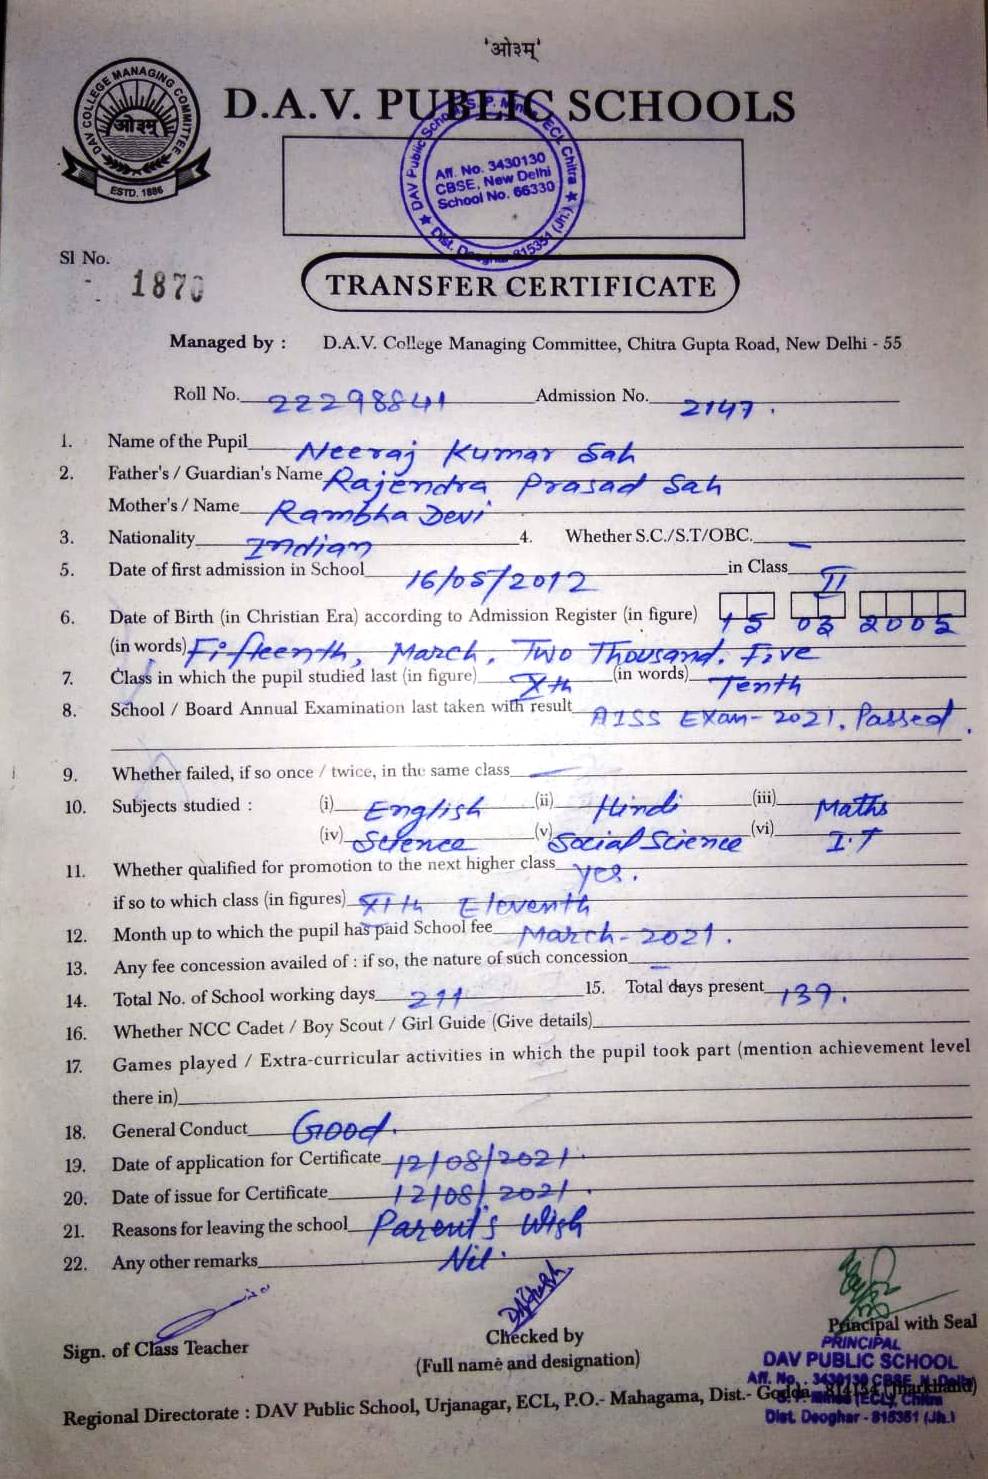 'ओ३म्'
DAV COLLEGE MANAGING COMMITTEE
ओ३म्
ESTD. 1886
D.A.V. PUBLIC SCHOOLS
DAV Public School, S. P. Mines ECL Chitra
Aff. No. 3430130
CBSE, New Delhi
School No. 66330
Dist. Deoghar 815351 (Jh.)
Sl No.
187
TRANSFER CERTIFICATE
Managed by : D.A.V. College Managing Committee, Chitra Gupta Road, New Delhi - 55
Roll No. 22298841 Admission No. 2147.
1. Name of the Pupil Neeraj Kumar Sah
2. Father's / Guardian's Name Rajendra Prasad Sah
Mother's / Name Rambha Devi
3. Nationality Indian 4. Whether S.C./S.T/OBC. —
5. Date of first admission in School 16/05/2012 in Class II
6. Date of Birth (in Christian Era) according to Admission Register (in figure) 15 03 2005
(in words) Fifteenth, March, Two Thousand, Five
7. Class in which the pupil studied last (in figure) Xth (in words) Tenth
8. School / Board Annual Examination last taken with result AISS Exam-2021, Passed.
9. Whether failed, if so once / twice, in the same class —
10. Subjects studied : (i) English (ii) Hindi (iii) Maths
(iv) Science (v) Social Science (vi) I.T
11. Whether qualified for promotion to the next higher class yes.
if so to which class (in figures) XIth Eleventh
12. Month up to which the pupil has paid School fee March-2021.
13. Any fee concession availed of : if so, the nature of such concession —
14. Total No. of School working days 211 15. Total days present 139.
16. Whether NCC Cadet / Boy Scout / Girl Guide (Give details)
17. Games played / Extra-curricular activities in which the pupil took part (mention achievement level
there in)
18. General Conduct Good.
19. Date of application for Certificate 12/08/2021.
20. Date of issue for Certificate 12/08/2021.
21. Reasons for leaving the school Parent's Wish
22. Any other remarks Nil.
Sign. of Class Teacher
Checked by
(Full name and designation)
Principal with Seal
PRINCIPAL
DAV PUBLIC SCHOOL
Aff. No. 3430130 CBSE, N. Delhi
S. P. Mines (ECL), Chitra
Dist. Deoghar - 815351 (Jh.)
Regional Directorate : DAV Public School, Urjanagar, ECL, P.O.- Mahagama, Dist.- Godda, 814154 (Jharkhand)